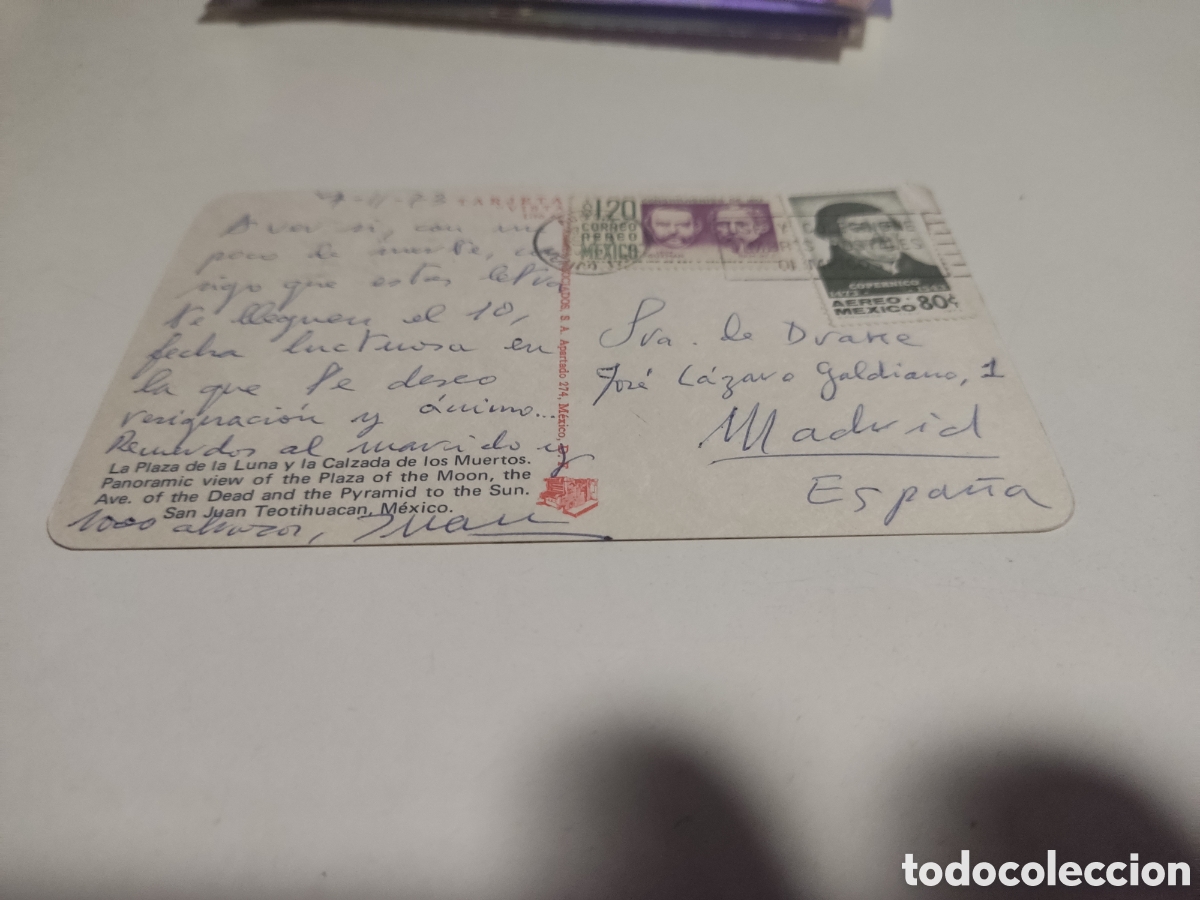 TARJETA
A ver si, con un
poco de suerte, con
sigo que estas letras
te lleguen el 10,
fecha luctuosa en
la que te deseo
resignación y ánimo...
Recuerdos al marido y
La Plaza de la Luna y la Calzada de los Muertos.
Panoramic view of the Plaza of the Moon, the
Ave. of the Dead and the Pyramid to the Sun.
San Juan Teotihuacan, México.
1000 abrazos, Juan
S. A. Apartado 274, México, D. F.
1.20
CORREO
AEREO
MEXICO
COPERNICO
AEREO
MEXICO 80c
Sra. de Drake
José Lázaro Galdiano, 1
Madrid
España
todocoleccion